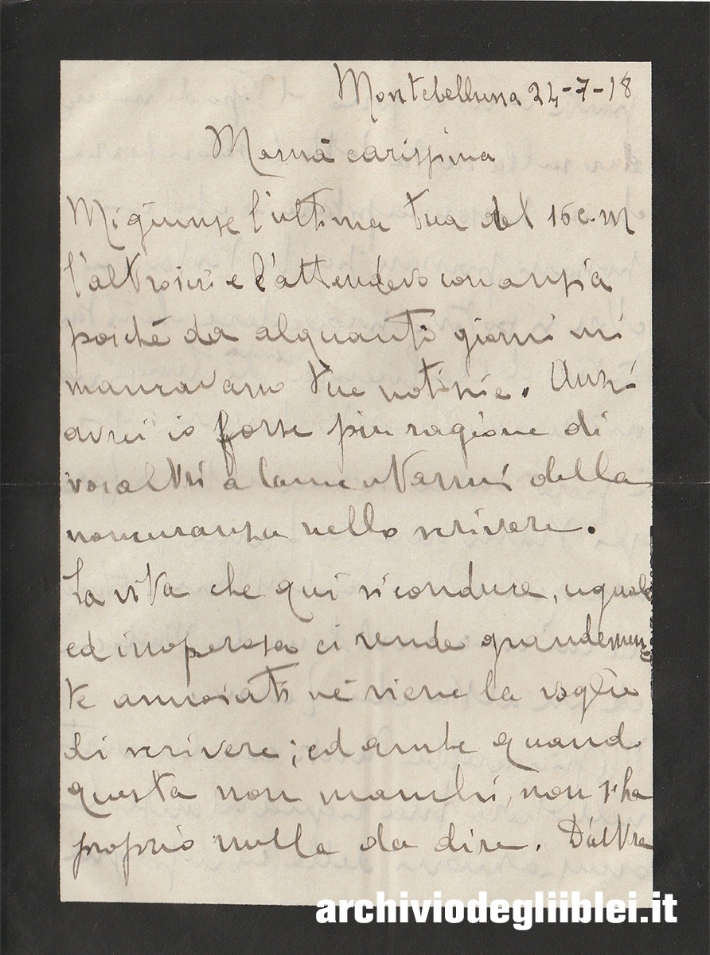 Montebelluna 24-7-18
Mamà carissima
Mi giunse l'ultima tua del 16 c.m
l'altro ieri e l'attendevo con ansia
poiché da alquanti giorni mi
mancavano tue notizie. Anzi
avrei io forse più ragione di
voialtri a lamentarmi della
noncuranza nello scrivere.
La vita che qui si conduce, uguale
ed inoperosa ci rende grandemen-
te annoiati né viene la voglia
di scrivere; ed anche quando
questa non manchi, non s'ha
proprio nulla da dire. D'altra
archiviodegliiblei.it